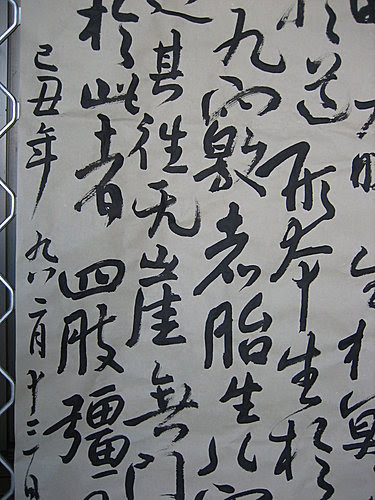 生於冥
於道形本生於
九竅者胎生八竅
其往无崖無門
於此者四肢彊
己丑年九八二月十三日